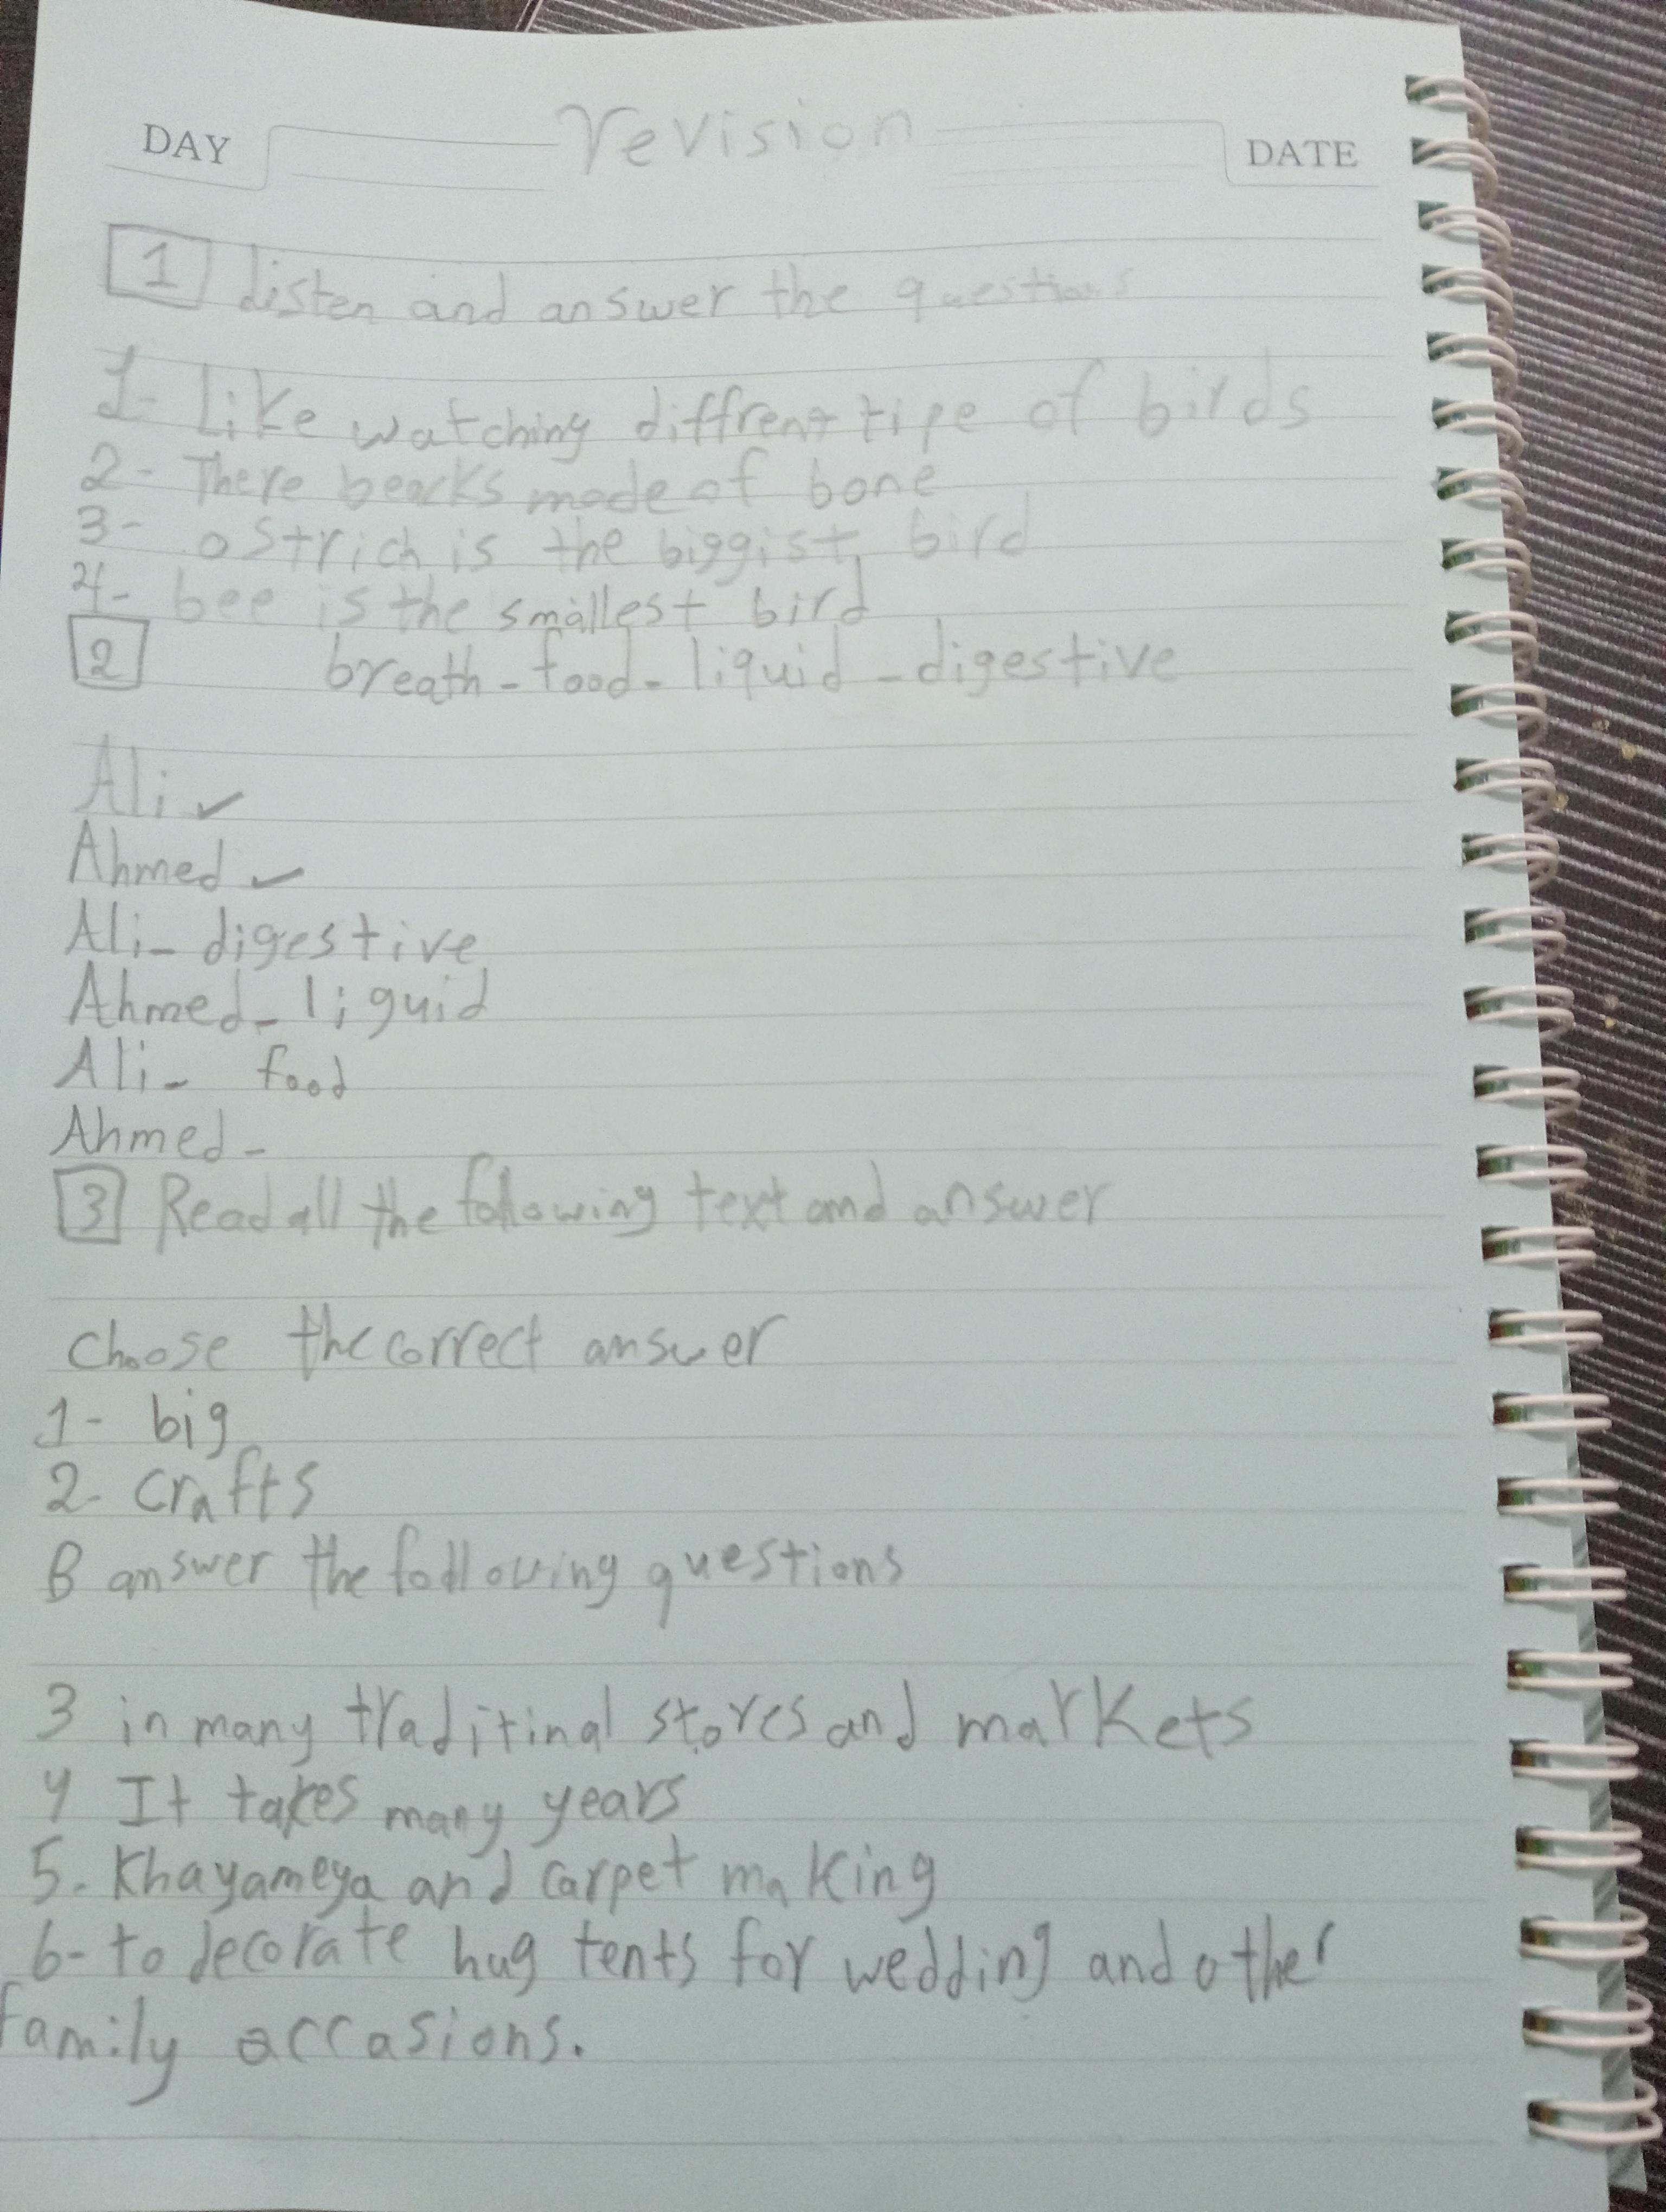 DAY
revision
DATE
1 Listen and answer the questions
1- Like watching diffrent tipe of birds
2- There beacks made of bone
3- ostrich is the biggist bird
4- bee is the smallest bird
2 breath - food - liquid - digestive
Ali ✓
Ahmed ✓
Ali - digestive
Ahmed - liquid
Ali - food
Ahmed -
3 Read all the following text and answer
choose the correct answer
1- big
2- crafts
B answer the following questions
3 in many traditinal stores and markets
4 It takes many years
5. Khayameya and carpet making
6- to decorate hug tents for wedding and other
family occasions.